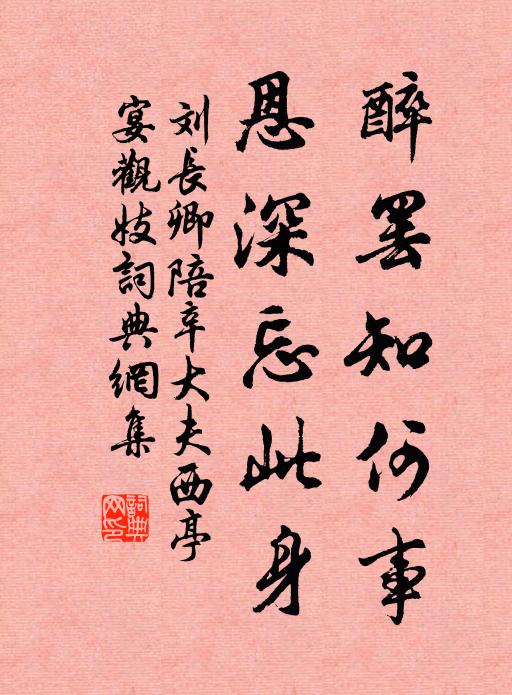 醉罢知何事
恩深忘此身
刘長卿陪辛大夫西亭
宴觀妓詞典網集
詞典
网印